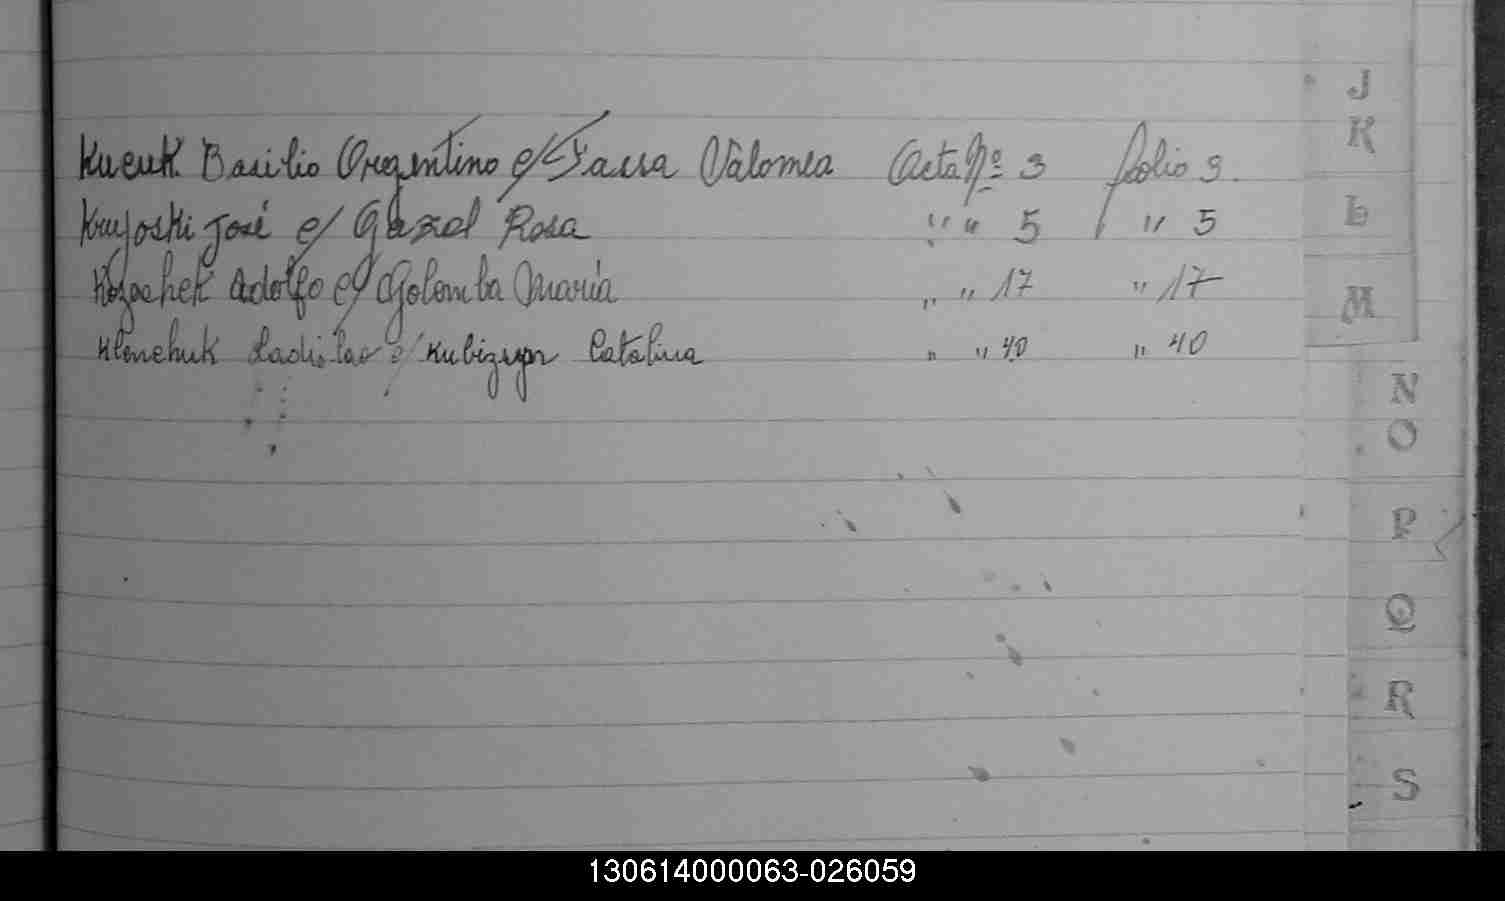 Kucuk Basilio Argentino c/ Fassa Valomea Acta Nº 3 folio 3.
José c/ Gazal Rosa " " 5 " 5
Kozachek Adolfo c/ Golomba María " " 17 " 17
Klenchuk Ladislao c/ Catalina " " 40 " 40
J
K
L
M
N
O
P
Q
R
S
130614000063-026059